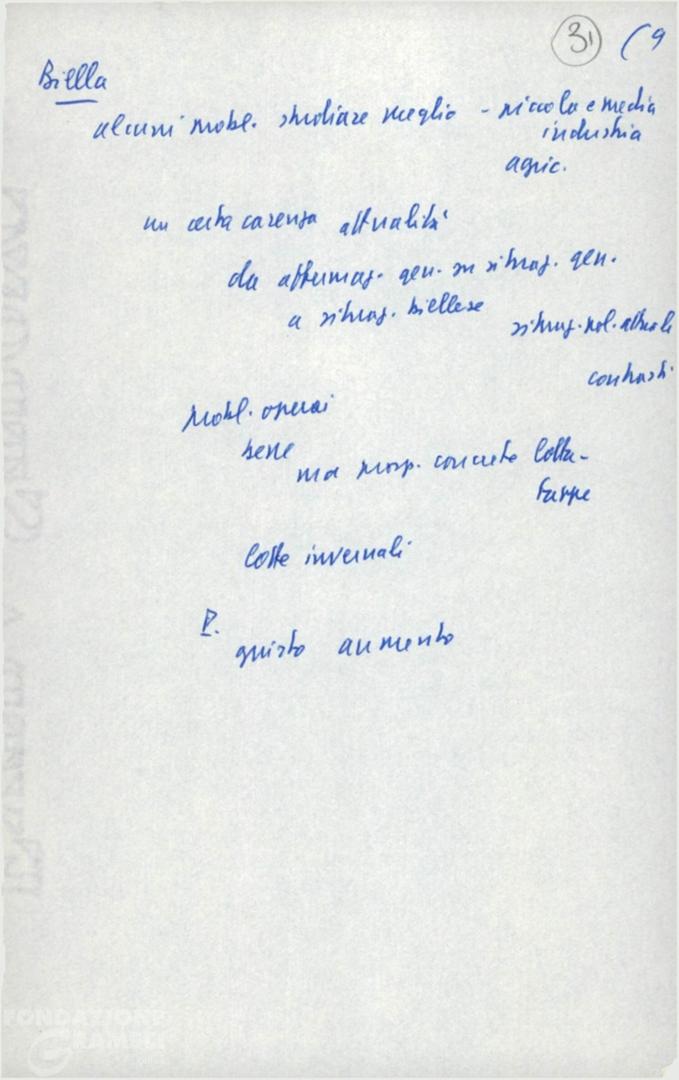 31 (9
Biella
alcuni probl. studiare meglio - piccola e media
industria
agric.
una certa carenza attualità
da affermaz. gen. su situaz. gen.
a situaz. biellese
situaz. pol. attuale
contrasti
probl. operai
bene
ma prosp. concrete lotta
lotte invernali
P.
giusto aumento
FONDAZIONE
GRAMSCI